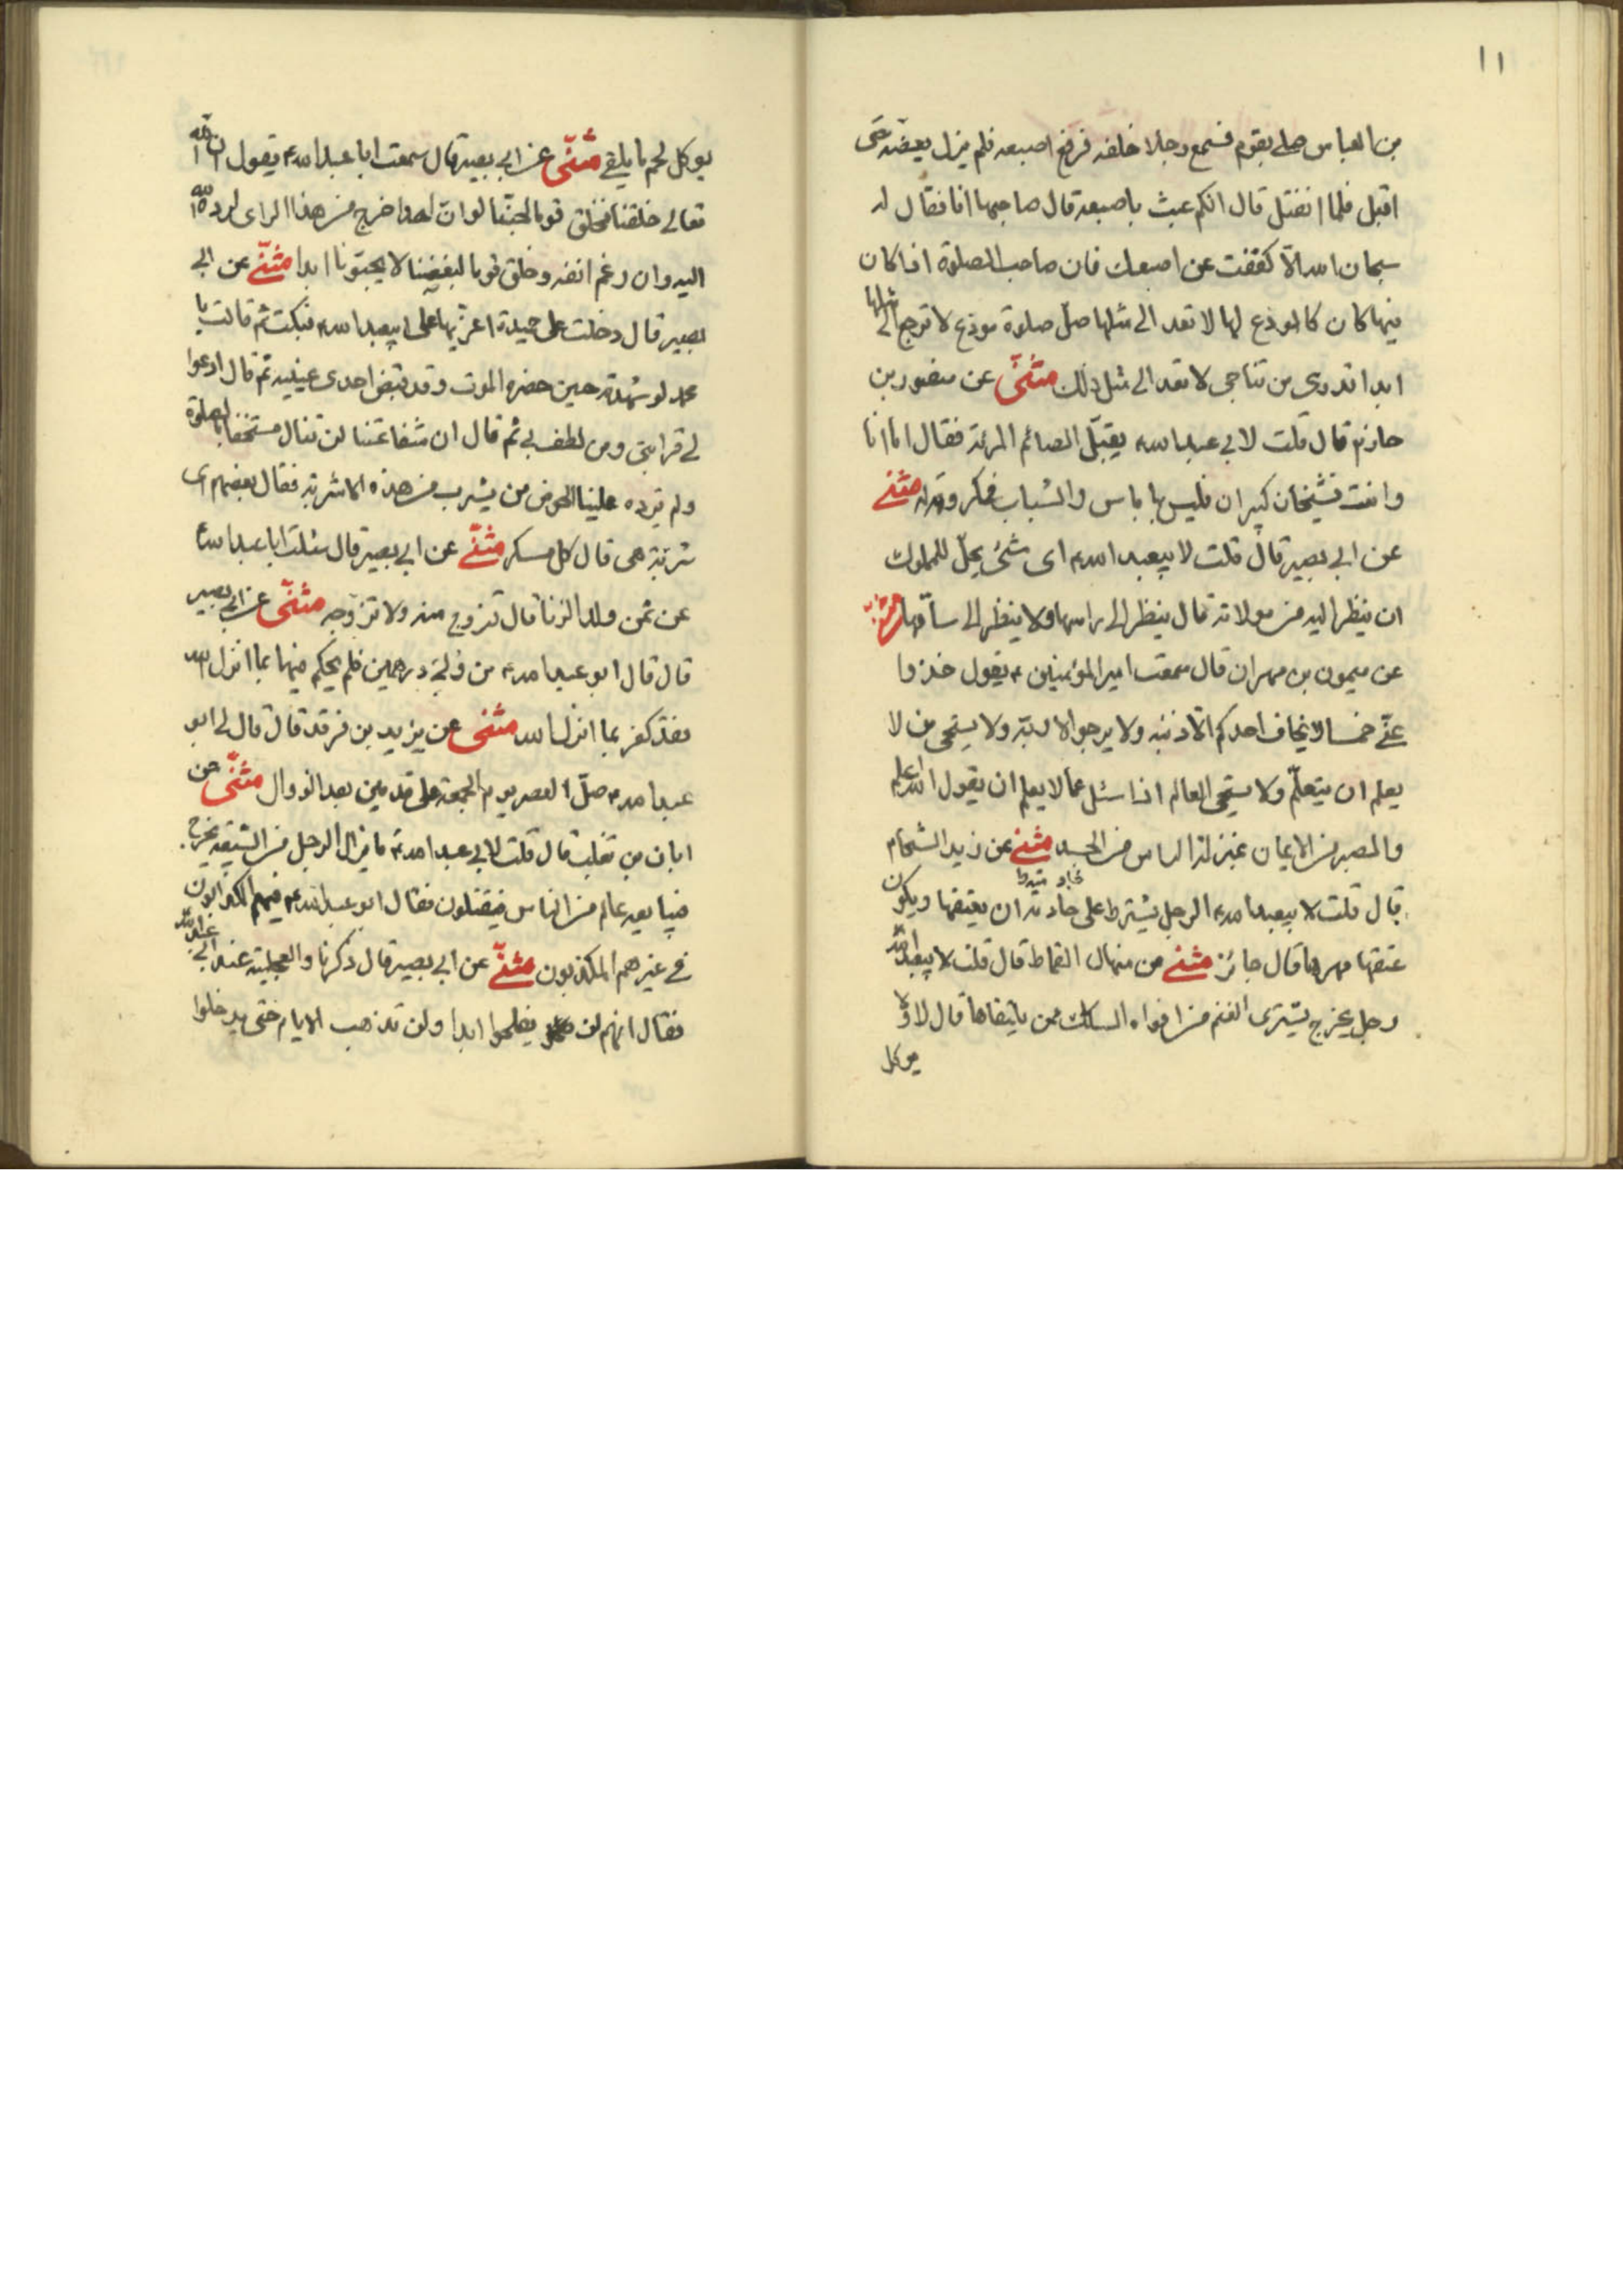 ١١
بن العباس صلى بقوم فسمع رجلا خلفه فرقع اصبعه فلم يزل يعيضه حتى
اقبل فلما انفتل قال ايكم عبث باصبعه قال صاحبها انا فقال له
سبحان الله الا كففت عن اصبعك فان صاحب الصلوة اذا كان
فيها كان كالمودع لها لا تعد الى مثلها صل صلوة مودع لا ترجع الى مثلها
ابدا اتدرى من تناجى لا تعد الى مثل ذلك مثنّى عن منصور بن
حازم قال قلت لابى عبد الله ء يقبّل الصائم المرئة فقال اما انا
وانت فشيخان كبيران فليس بها باس والشباب فمكروه له مثنى
عن ابى بصير قال قلت لابيعبد الله ء اى شئ يحلّ للمملوك
ان ينظر اليه من مولاته قال ينظر الى راسها ولا ينظر الى ساقها مثنى
عن ميمون بن مهران قال سمعت امير المؤمنين ء يقول خذوا
عنّى خمسا لا يخاف احدكم الّا ذنبه ولا يرجو الا ربّه ولا يستحى من لا
يعلم ان يتعلّم ولا يستحى العالم اذا سئل عما لا يعلم ان يقول الله اعلم
والصبر من الايمان بمنزلة الراس من الجسد مثنى عن زيد الشحام
قال قلت لابيعبد الله ء الرجل يشترط على جاريته ان يعتقها ويكون
عتقها مهرها قال جائز مثنى عن منهال القماط قال قلت لابيعبد الله
رجل يخرج يشترى الغنم من افواه السكك ممن يلتقاها قال لا ولا
يوكل
يوكل لحم ما يلقى مثنّى عن ابى بصير قال سمعت ابا عبد الله ء يقول ان الله
تعالى خلقنا فخلق قوما لحبّنا لو ان احدا خرج من هذا الراى لرده الله
اليه وان رغم انفه وخلق قوما لبغضنا لا يحبّونا ابدا مثنّى عن ابى
بصير قال دخلت على حميدة اعزّيها على ابيعبد الله ء فبكت ثم قالت يا
محمد لو شهدته حين حضره الموت وقد قبض احدى عينيه ثم قال ادعوا
لى قرابتى ومن لطف بى ثم قال ان شفاعتنا لن تنال مستخفا بالصلوة
ولم يرد علينا الحوض من يشرب من هذه الاشربة فقال بعضهم اى
شربة هى قال كل مسكر مثنّى عن ابى بصير قال سئلت ابا عبد الله ء
عن ثمن ولد الزنا قال تزوج منه ولا تزوّجه مثنّى عن ابى بصير
قال قال ابو عبد الله ء من ولى درهمين فلم يحكم فيهما بما انزل الله
فقد كفر بما انزل الله مثنى عن يزيد بن فرقد قال قال لى ابو
عبد الله ء صلّ العصر يوم الجمعة على قدمين بعد الزوال مثنّى عن
ابان بن تغلب قال قلت لابى عبد الله ء ما يزال الرجل من الشيعة يخرج
فيبايعه عالم من الناس فيقتلون فقال ابو عبد الله ء فيهم الكذابون
فى غيرهم المكذبون مثنّى عن ابى بصير قال ذكرنا والعجلية عند ابى عبد الله
فقال انهم لن يفلحوا ابدا ولن تذهب الايام حتى يدخلوا